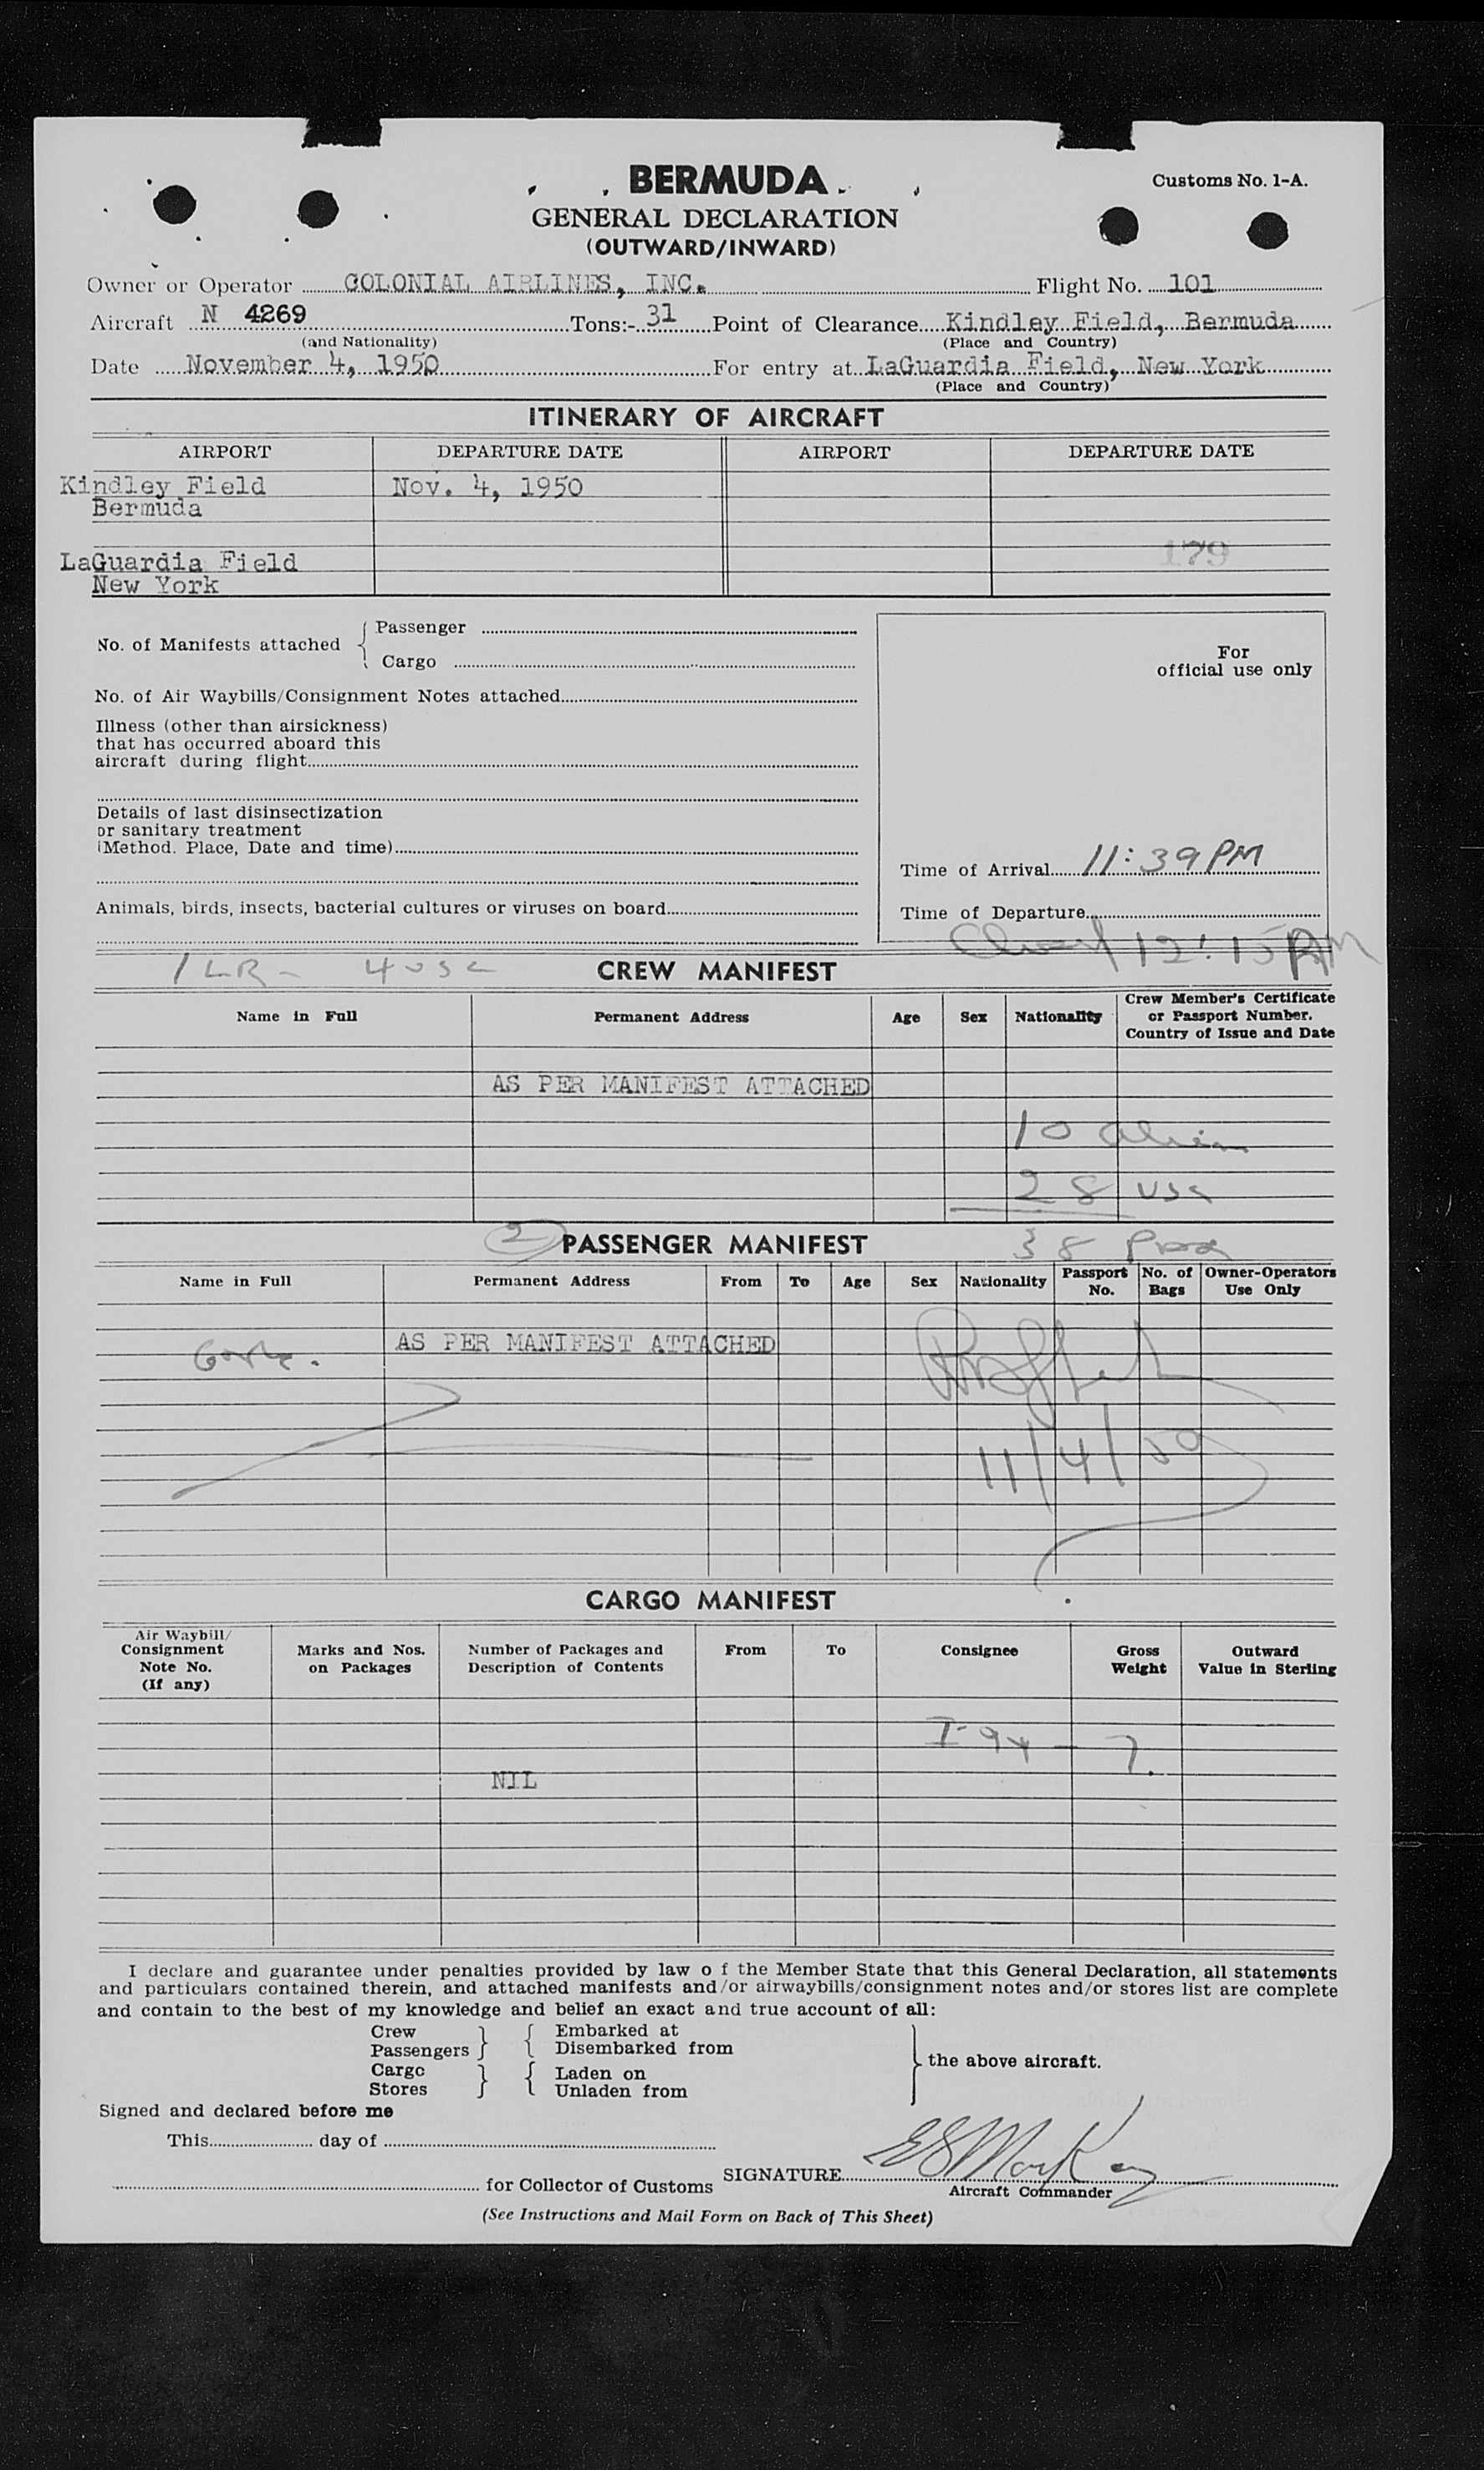 BERMUDA
Customs No. 1-A.
GENERAL DECLARATION
(OUTWARD/INWARD)
Owner or Operator COLONIAL AIRLINES, INC. Flight No. 101
Aircraft N 4269 Tons:- 31 Point of Clearance Kindley Field, Bermuda
(and Nationality) (Place and Country)
Date November 4, 1950 For entry at LaGuardia Field, New York
(Place and Country)
ITINERARY OF AIRCRAFT
AIRPORT DEPARTURE DATE AIRPORT DEPARTURE DATE
Kindley Field Nov. 4, 1950
Bermuda
179
LaGuardia Field
New York
No. of Manifests attached
Passenger
Cargo
No. of Air Waybills/Consignment Notes attached
Illness (other than airsickness)
that has occurred aboard this
aircraft during flight
Details of last disinsectization
or sanitary treatment
(Method. Place, Date and time)
Animals, birds, insects, bacterial cultures or viruses on board
For
official use only
Time of Arrival 11:39 PM
Time of Departure
12:15 AM
1 LR - 4 usc
CREW MANIFEST
Name in Full Permanent Address Age Sex Nationality Crew Member's Certificate or Passport Number. Country of Issue and Date
AS PER MANIFEST ATTACHED
10 alien
28 usc
2 PASSENGER MANIFEST 38
Name in Full Permanent Address From To Age Sex Nationality Passport No. No. of Bags Owner-Operators Use Only
AS PER MANIFEST ATTACHED
11/4/50
CARGO MANIFEST
Air Waybill/ Consignment Note No. (If any) Marks and Nos. on Packages Number of Packages and Description of Contents From To Consignee Gross Weight Outward Value in Sterling
I-94 - 7.
NIL
I declare and guarantee under penalties provided by law o f the Member State that this General Declaration, all statements
and particulars contained therein, and attached manifests and/or airwaybills/consignment notes and/or stores list are complete
and contain to the best of my knowledge and belief an exact and true account of all:
Crew Embarked at
Passengers Disembarked from
the above aircraft.
Cargo Laden on
Stores Unladen from
Signed and declared before me
This day of
SIGNATURE ES MacKay
for Collector of Customs
Aircraft Commander
(See Instructions and Mail Form on Back of This Sheet)